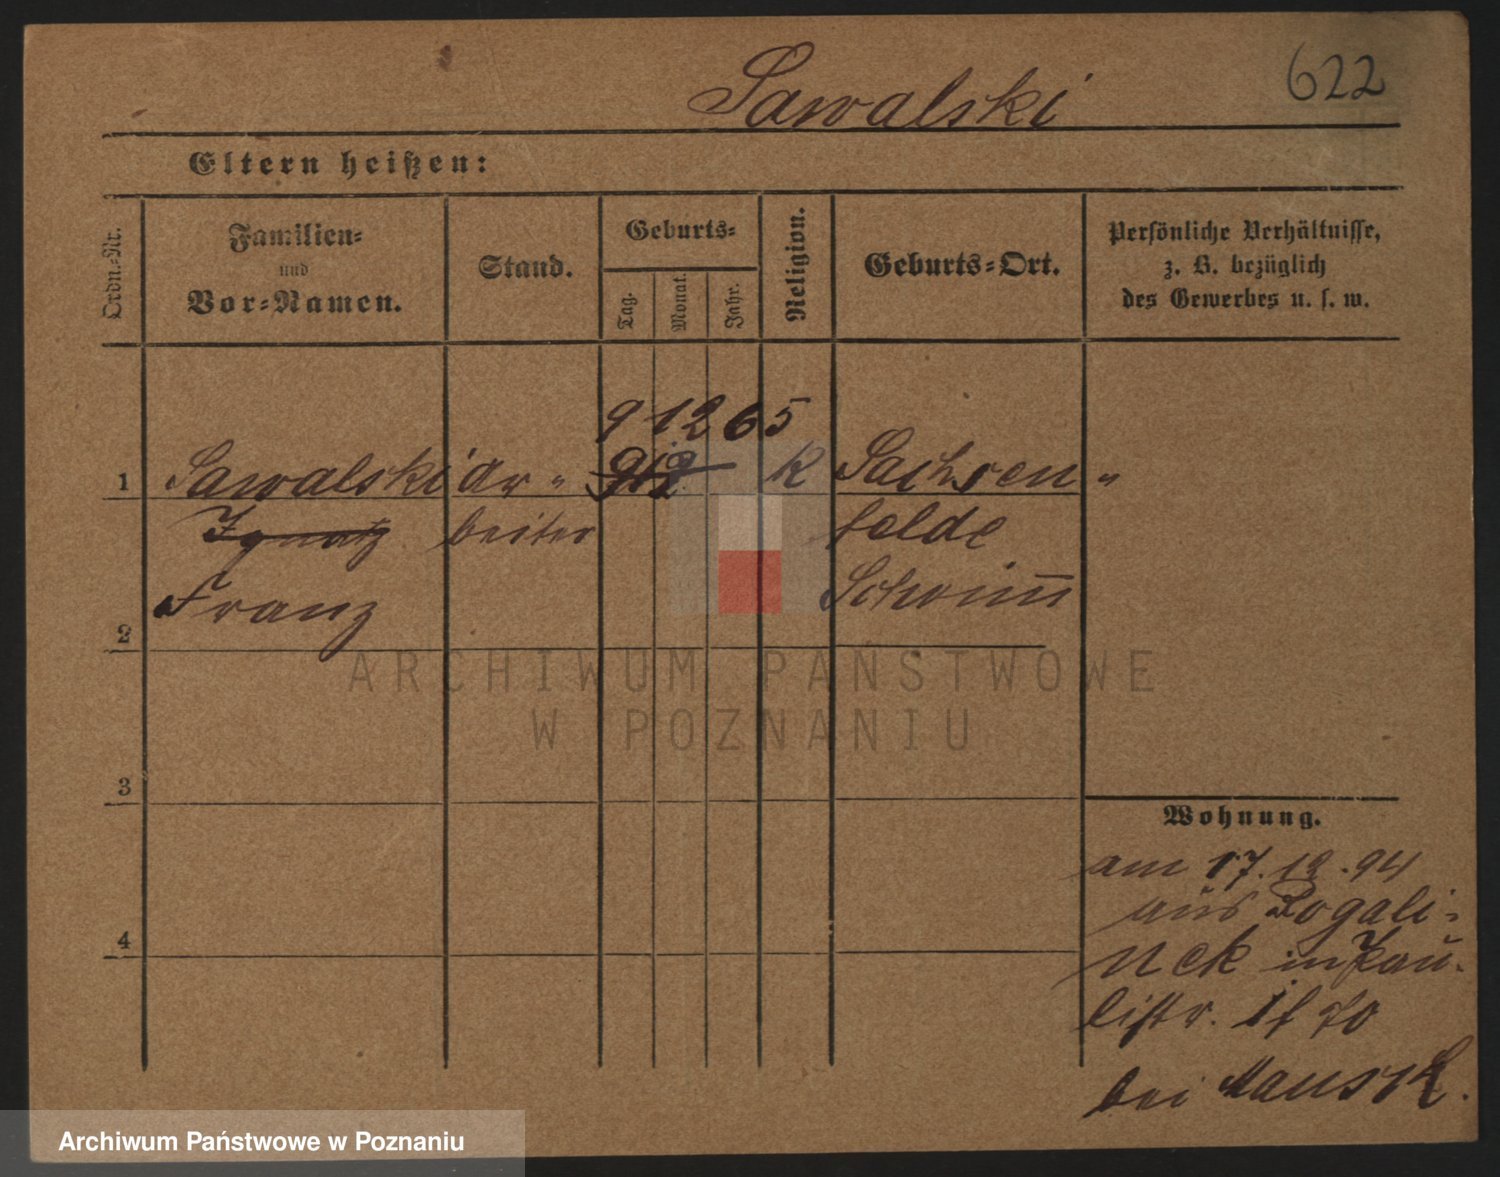 Sawalski
622
Eltern heißen:
Ordn.-Nr.
Familien-
und
Vor-Namen.
Stand.
Geburts-
Tag.
Monat.
Jahr.
Religion.
Geburts-Ort.
Persönliche Verhältnisse,
z. B. bezüglich
des Gewerbes u. s. w.
9 12 65
1 Sawalski Ar " 912 K Sachsen "
Ignatz beiter felde
Franz Schrimm
2
ARCHIWUM PAŃSTWOWE
W POZNANIU
3
Wohnung.
am 17. 12. 94
aus Rogali-
neck in Pau-
listr.
4
bei
Archiwum Państwowe w Poznaniu